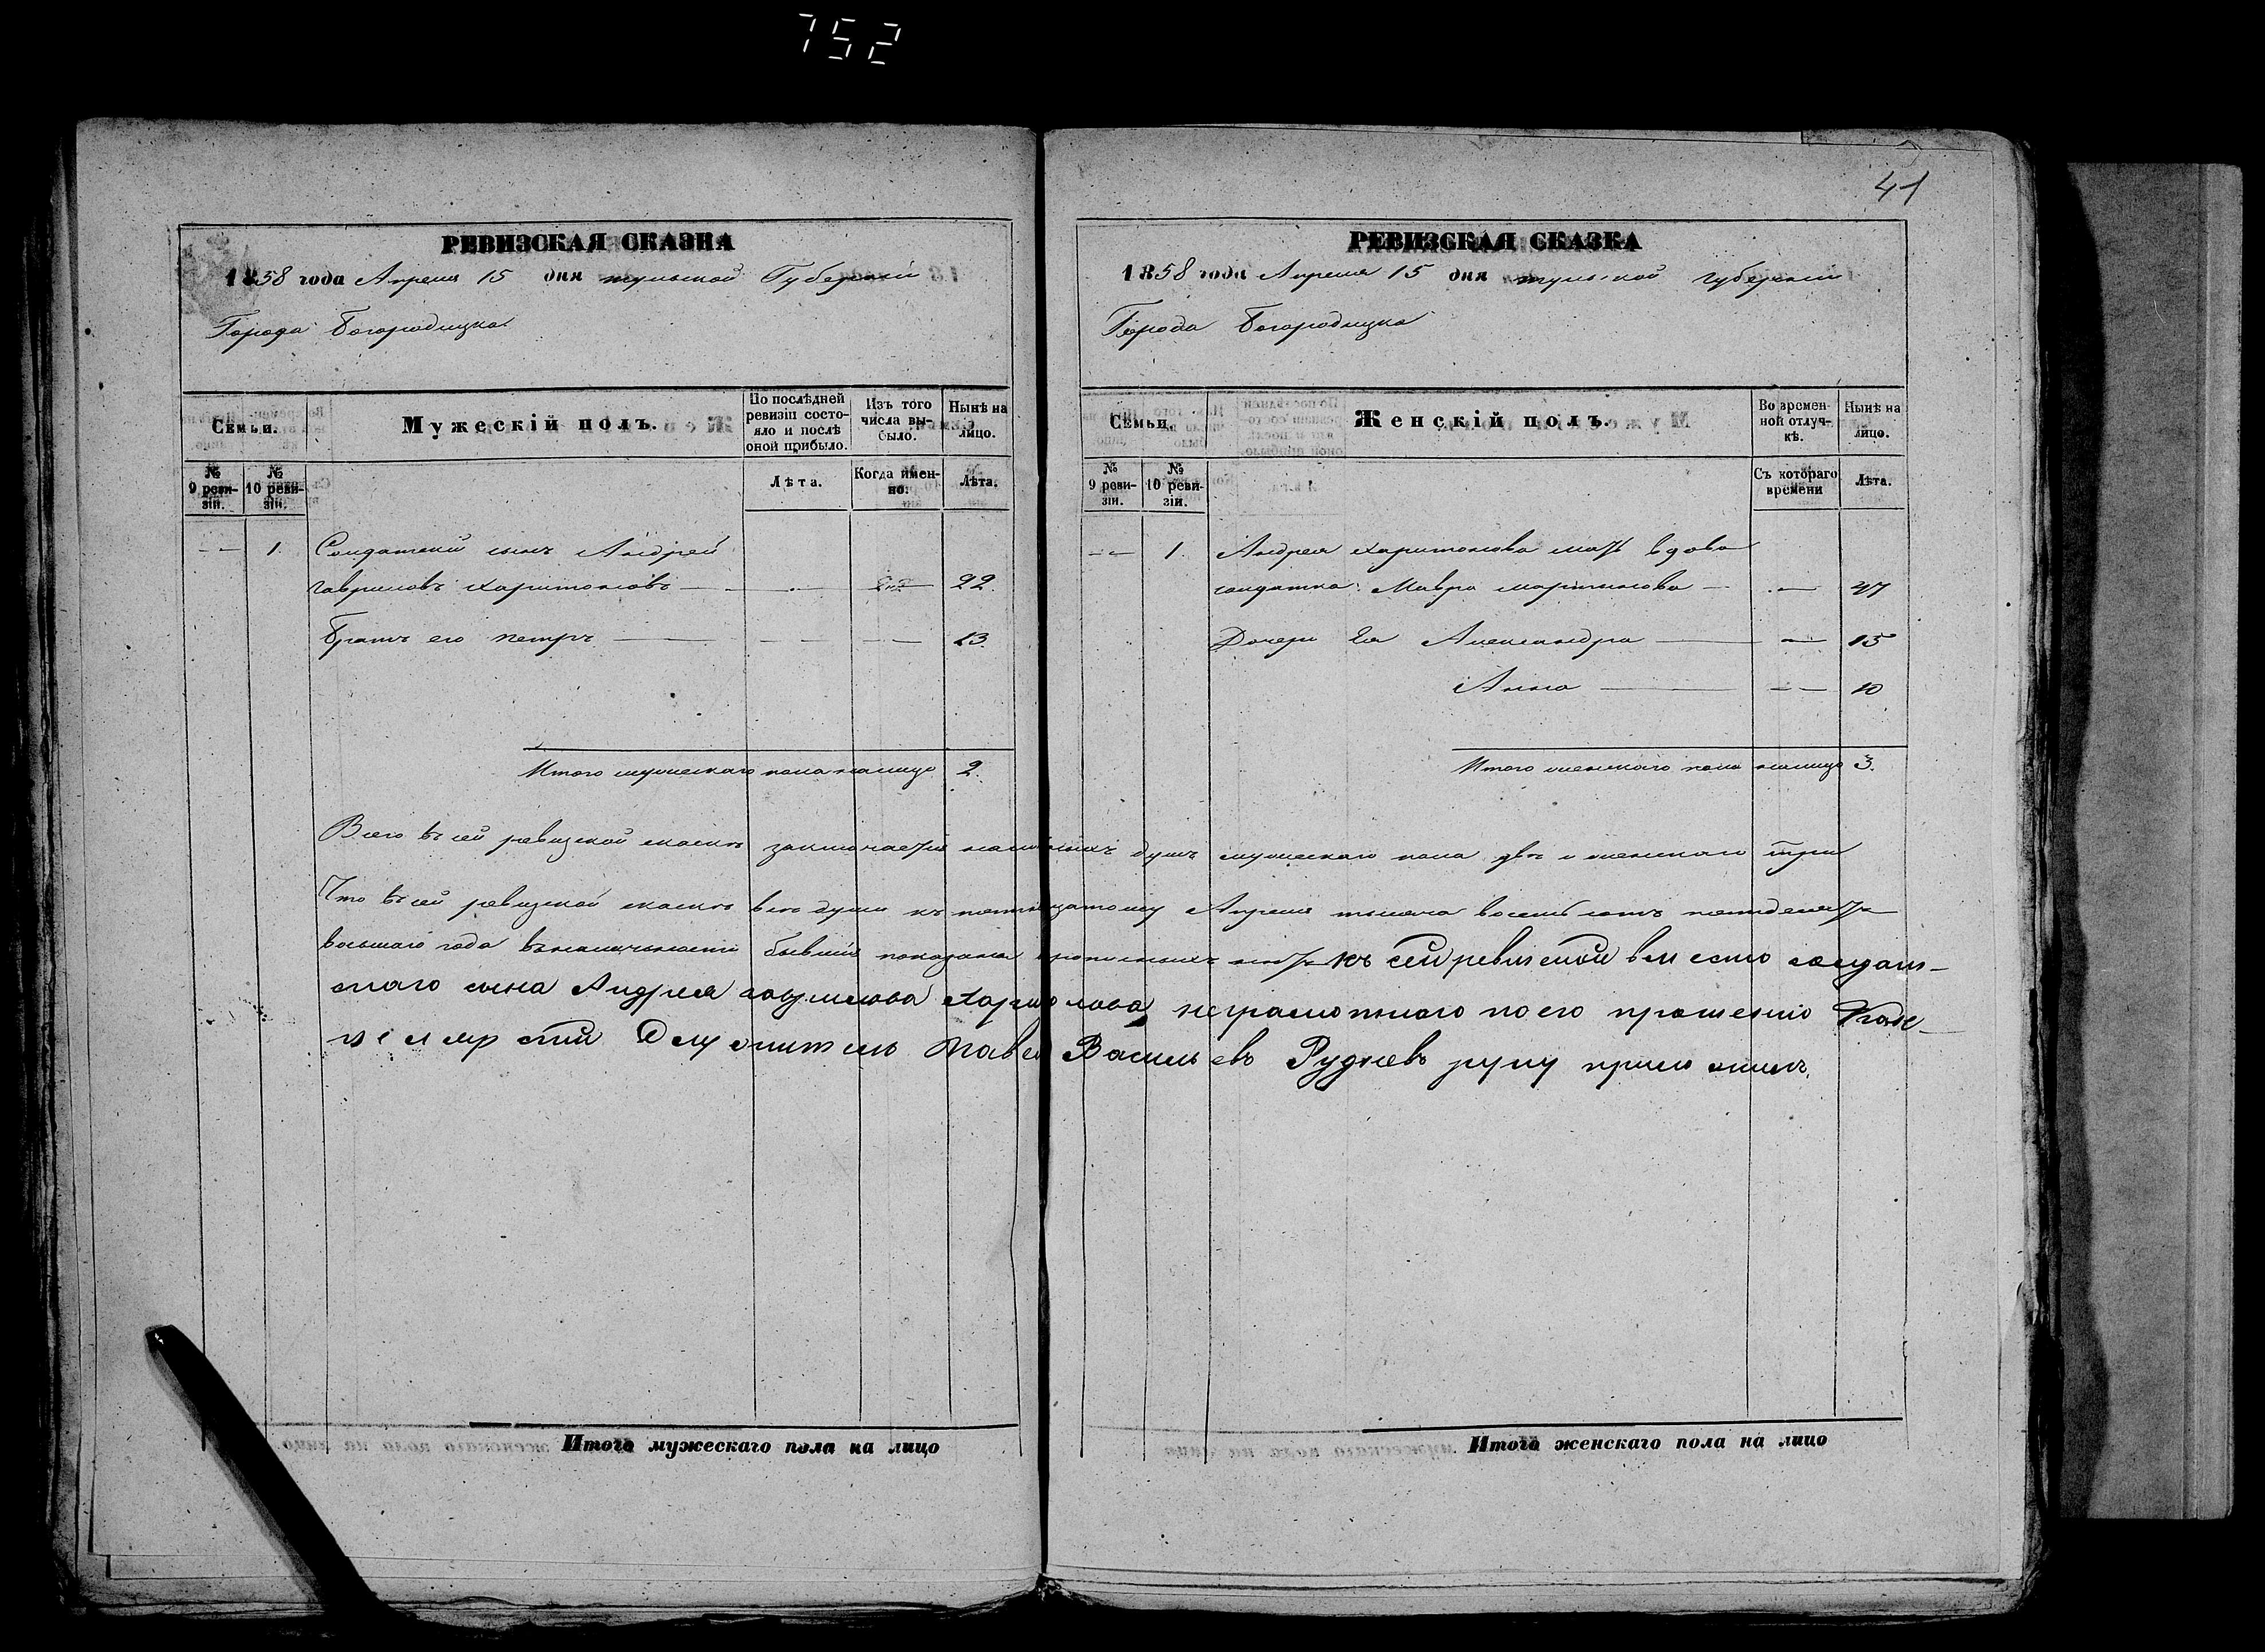 752
41
РЕВИЗСКАЯ СКАЗКА
1858 года Апреля 15 дня тульской Губернии
Города Богородицка
Семьи.
Мужескій полъ.
По послѣдней ревизіи состояло и послѣ оной прибыло.
Изъ того числа выбыло.
Нынѣ на лицо.
№ 9 ревизіи.
№ 10 ревизіи.
Лѣта.
Когда именно.
Лѣта.
— 1. Солдатский сынъ Андрей
гавриловъ харитоновъ — — — 22.
Братъ его петръ — — — 13.
Итого мужескаго пола налицо 2.
РЕВИЗСКАЯ СКАЗКА
1858 года Апреля 15 дня тульской губернии
Города Богородицка
Семьи.
Женскій полъ.
Во времен-ной отлуч-кѣ.
Нынѣ на лицо.
№ 9 реви-зіи.
№ 10 реви-зіи.
Съ котораго времени
Лѣта.
— 1. Андрея харитонова мать вдова
солдатка Мавра мартинова — — 47
Дочери Ея Александра — — 15
Анна — — 10
Итого женскаго пола налицо 3.
Всего въ сей ревизской сказке заключается наличныхъ душъ мужескаго пола две и женскаго три
Что въ сей ревизской сказке все души къ пятнадцатому Апреля тысяча восемьсотъ пятдесятъ
восьмаго года въ наличности бывшие показаны и прописныхъ нетъ къ сей ревиской вместо солдат-
скаго сына Андрея гаврилова Харитонова неграмотнаго по его прошению
служитель Павел Васильевъ Рудневъ руку приложилъ.
Итого мужескаго пола на лицо
Итого женскаго пола на лицо